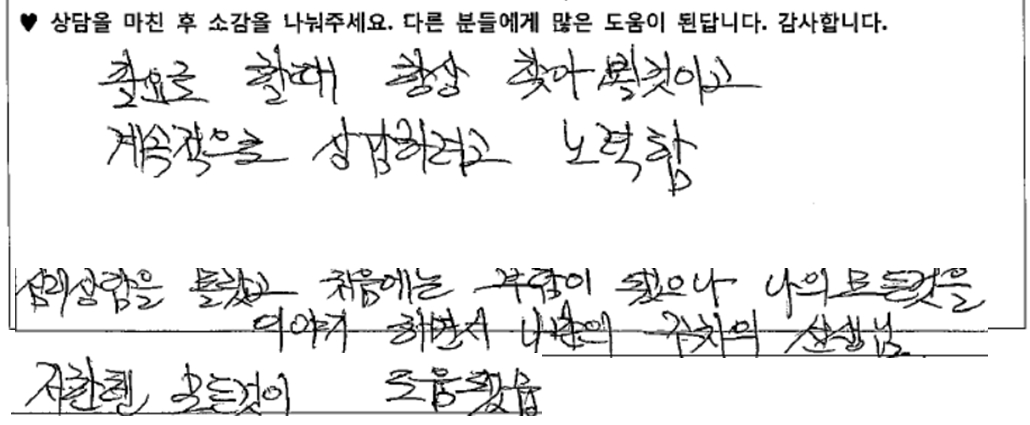 ♥ 상담을 마친 후 소감을 나눠주세요. 다른 분들에게 많은 도움이 된답니다. 감사합니다.
필요로 할때 항상 찾아뵐것이고
계속적으로 상담하려고 노력함
심리상담을 들렸고 처음에는 부담이 됐으나 나의 모든것을
이야기 하면서 선생님
저한텐 모든것이 도움됐음